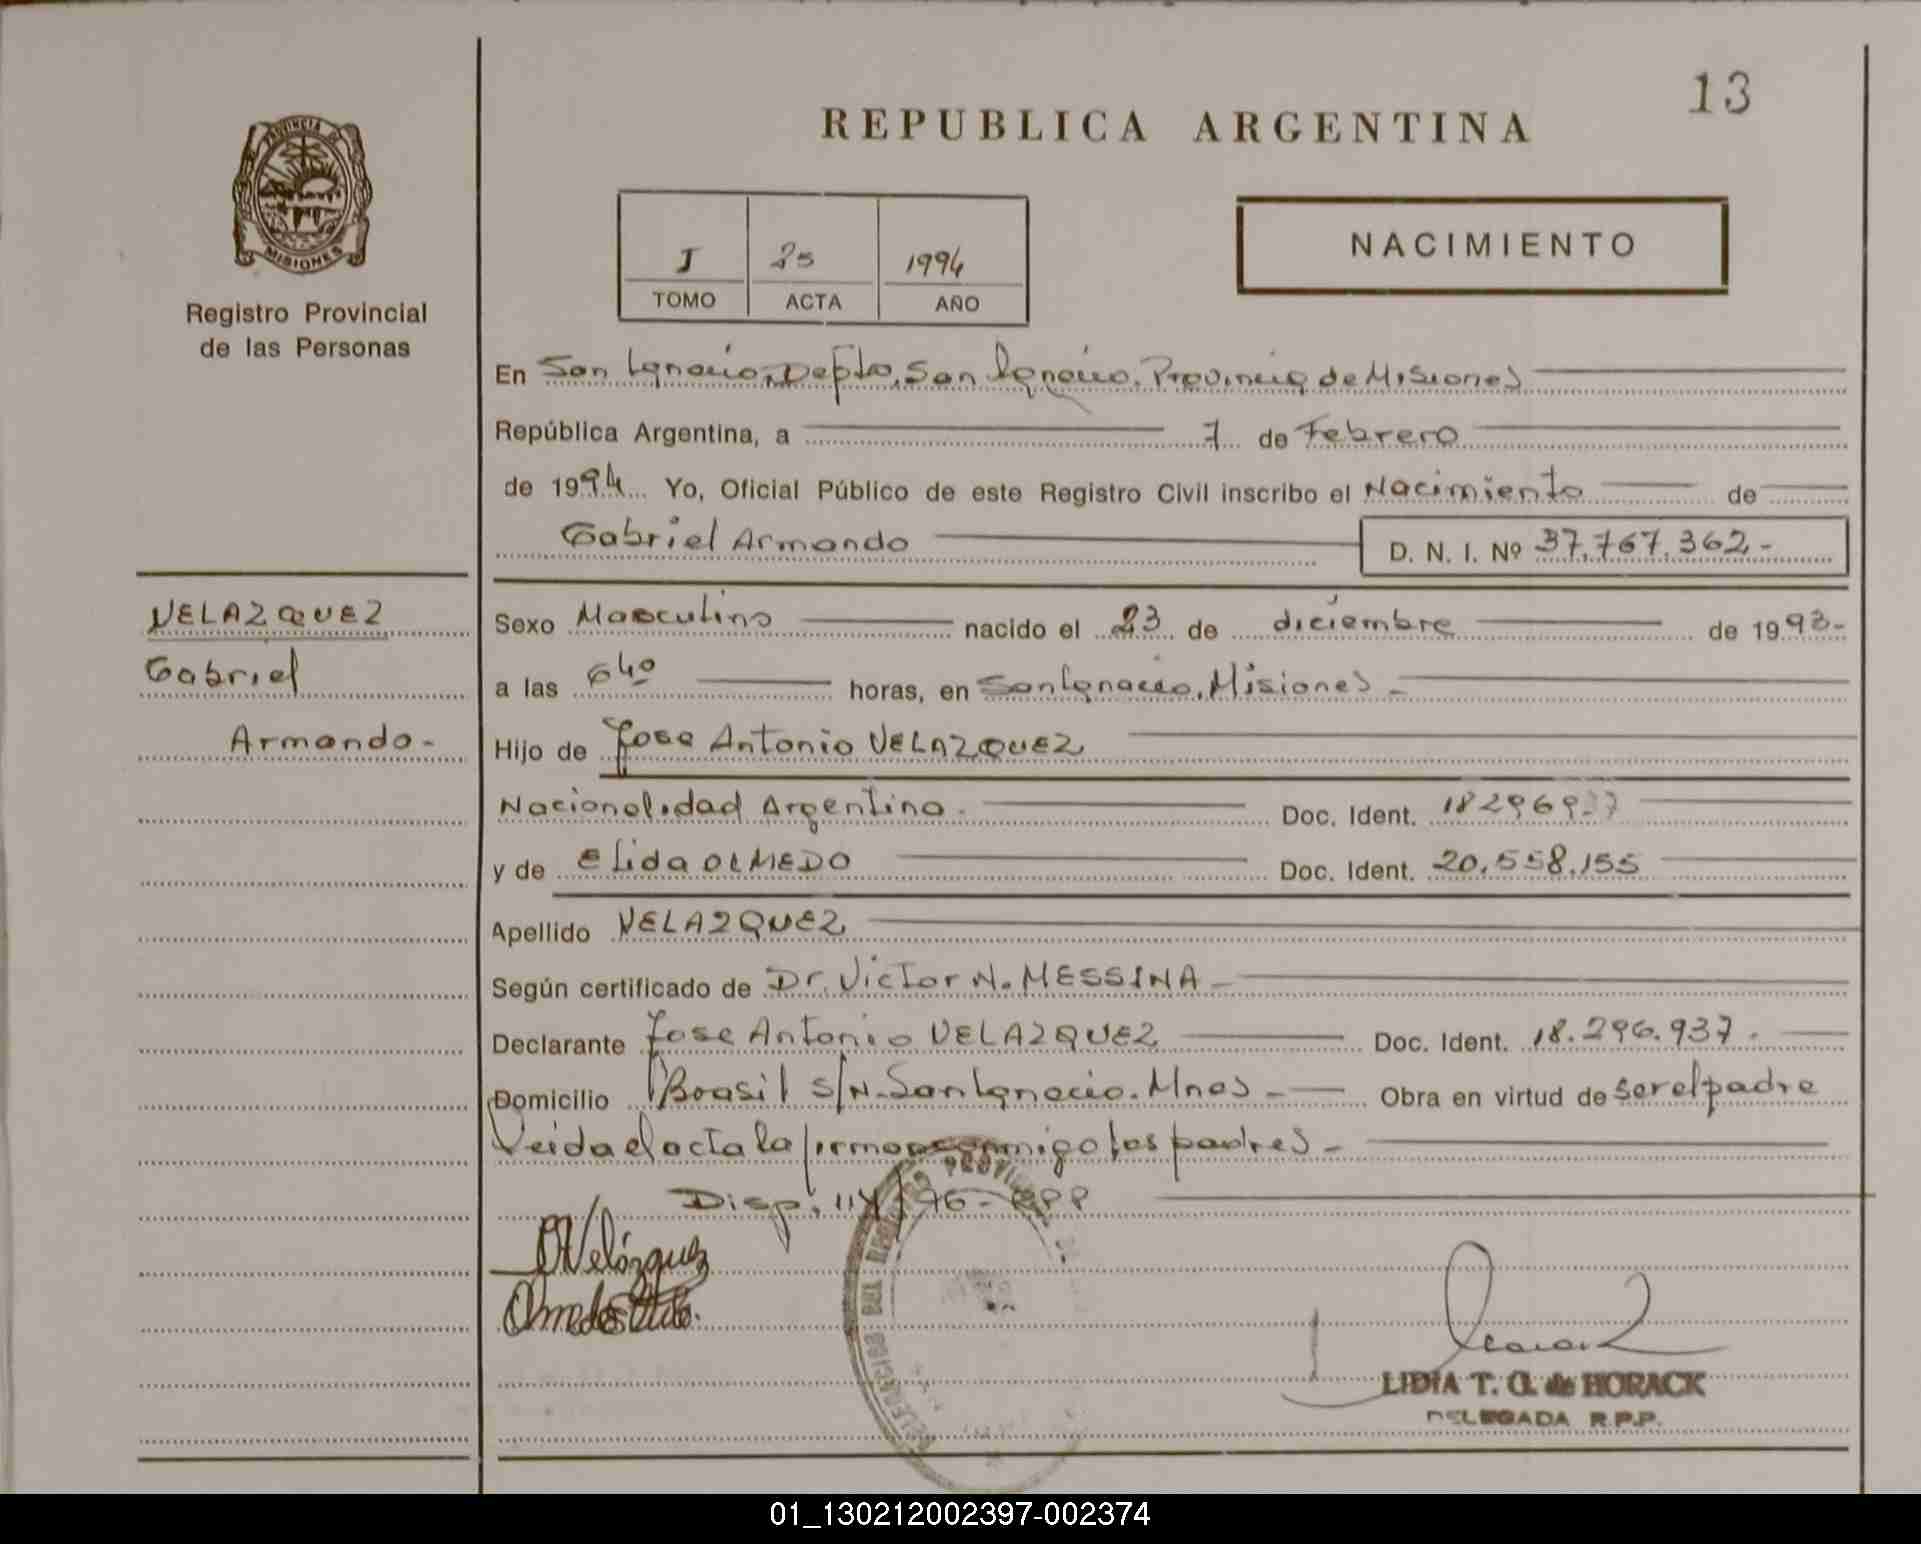 13
REPUBLICA ARGENTINA
PROVINCIA DE
MISIONES
Registro Provincial
de las Personas
I 25 1994
TOMO ACTA AÑO
NACIMIENTO
En San Ignacio, Depto, San Ignacio, Provincia de Misiones
República Argentina, a 7 de Febrero
de 1994 Yo, Oficial Público de este Registro Civil inscribo el Nacimiento de
Gabriel Armando D. N. I. Nº 37.767.362-
VELAZQUEZ
Gabriel
Armando-
Sexo Masculino nacido el 23 de diciembre de 1993-
a las 6 40 horas, en San Ignacio, Misiones-
Hijo de Jose Antonio VELAZQUEZ
Nacionalidad Argentina- Doc. Ident.
y de Elida OLMEDO Doc. Ident. 20.558.155
Apellido VELAZQUEZ
Según certificado de Dr. Victor N. MESSINA-
Declarante Jose Antonio VELAZQUEZ Doc. Ident. 18.296.937.
Domicilio Brasil S/N-San Ignacio. Mnes- Obra en virtud de ser el padre
Leida el acta la firman conmigo los padres-
Disp. /76- RPP
Velázquez
Olmedo Elida.
DELEGACION DEL
LIDIA T. G. de HORACK
DELEGADA R.P.P.
01_130212002397-002374